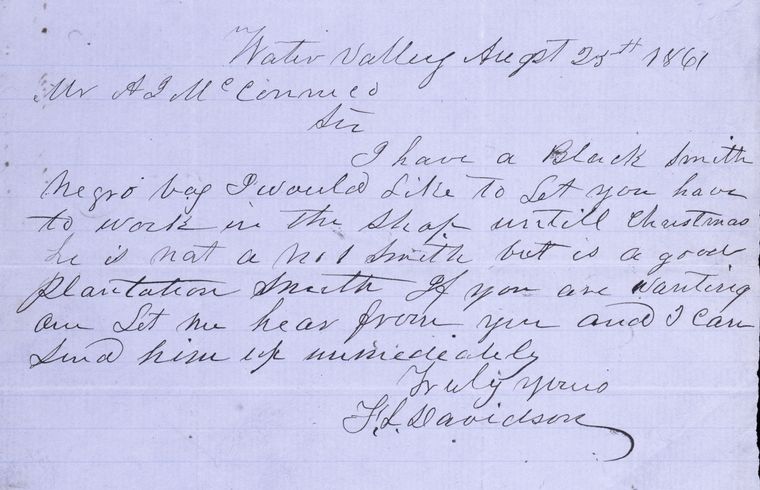 Water Valley Augst 25th 1861
Mr A J McConnico
Sir
I have a Black Smith
Negro boy I would Like to Let you have
to work in the Shop untill Christmas
he is not a No 1 Smith but is a good
Plantation Smith If you are wanting
one Let me hear from you and I can
Send him up immediately
Truly yours
F. L. Davidson